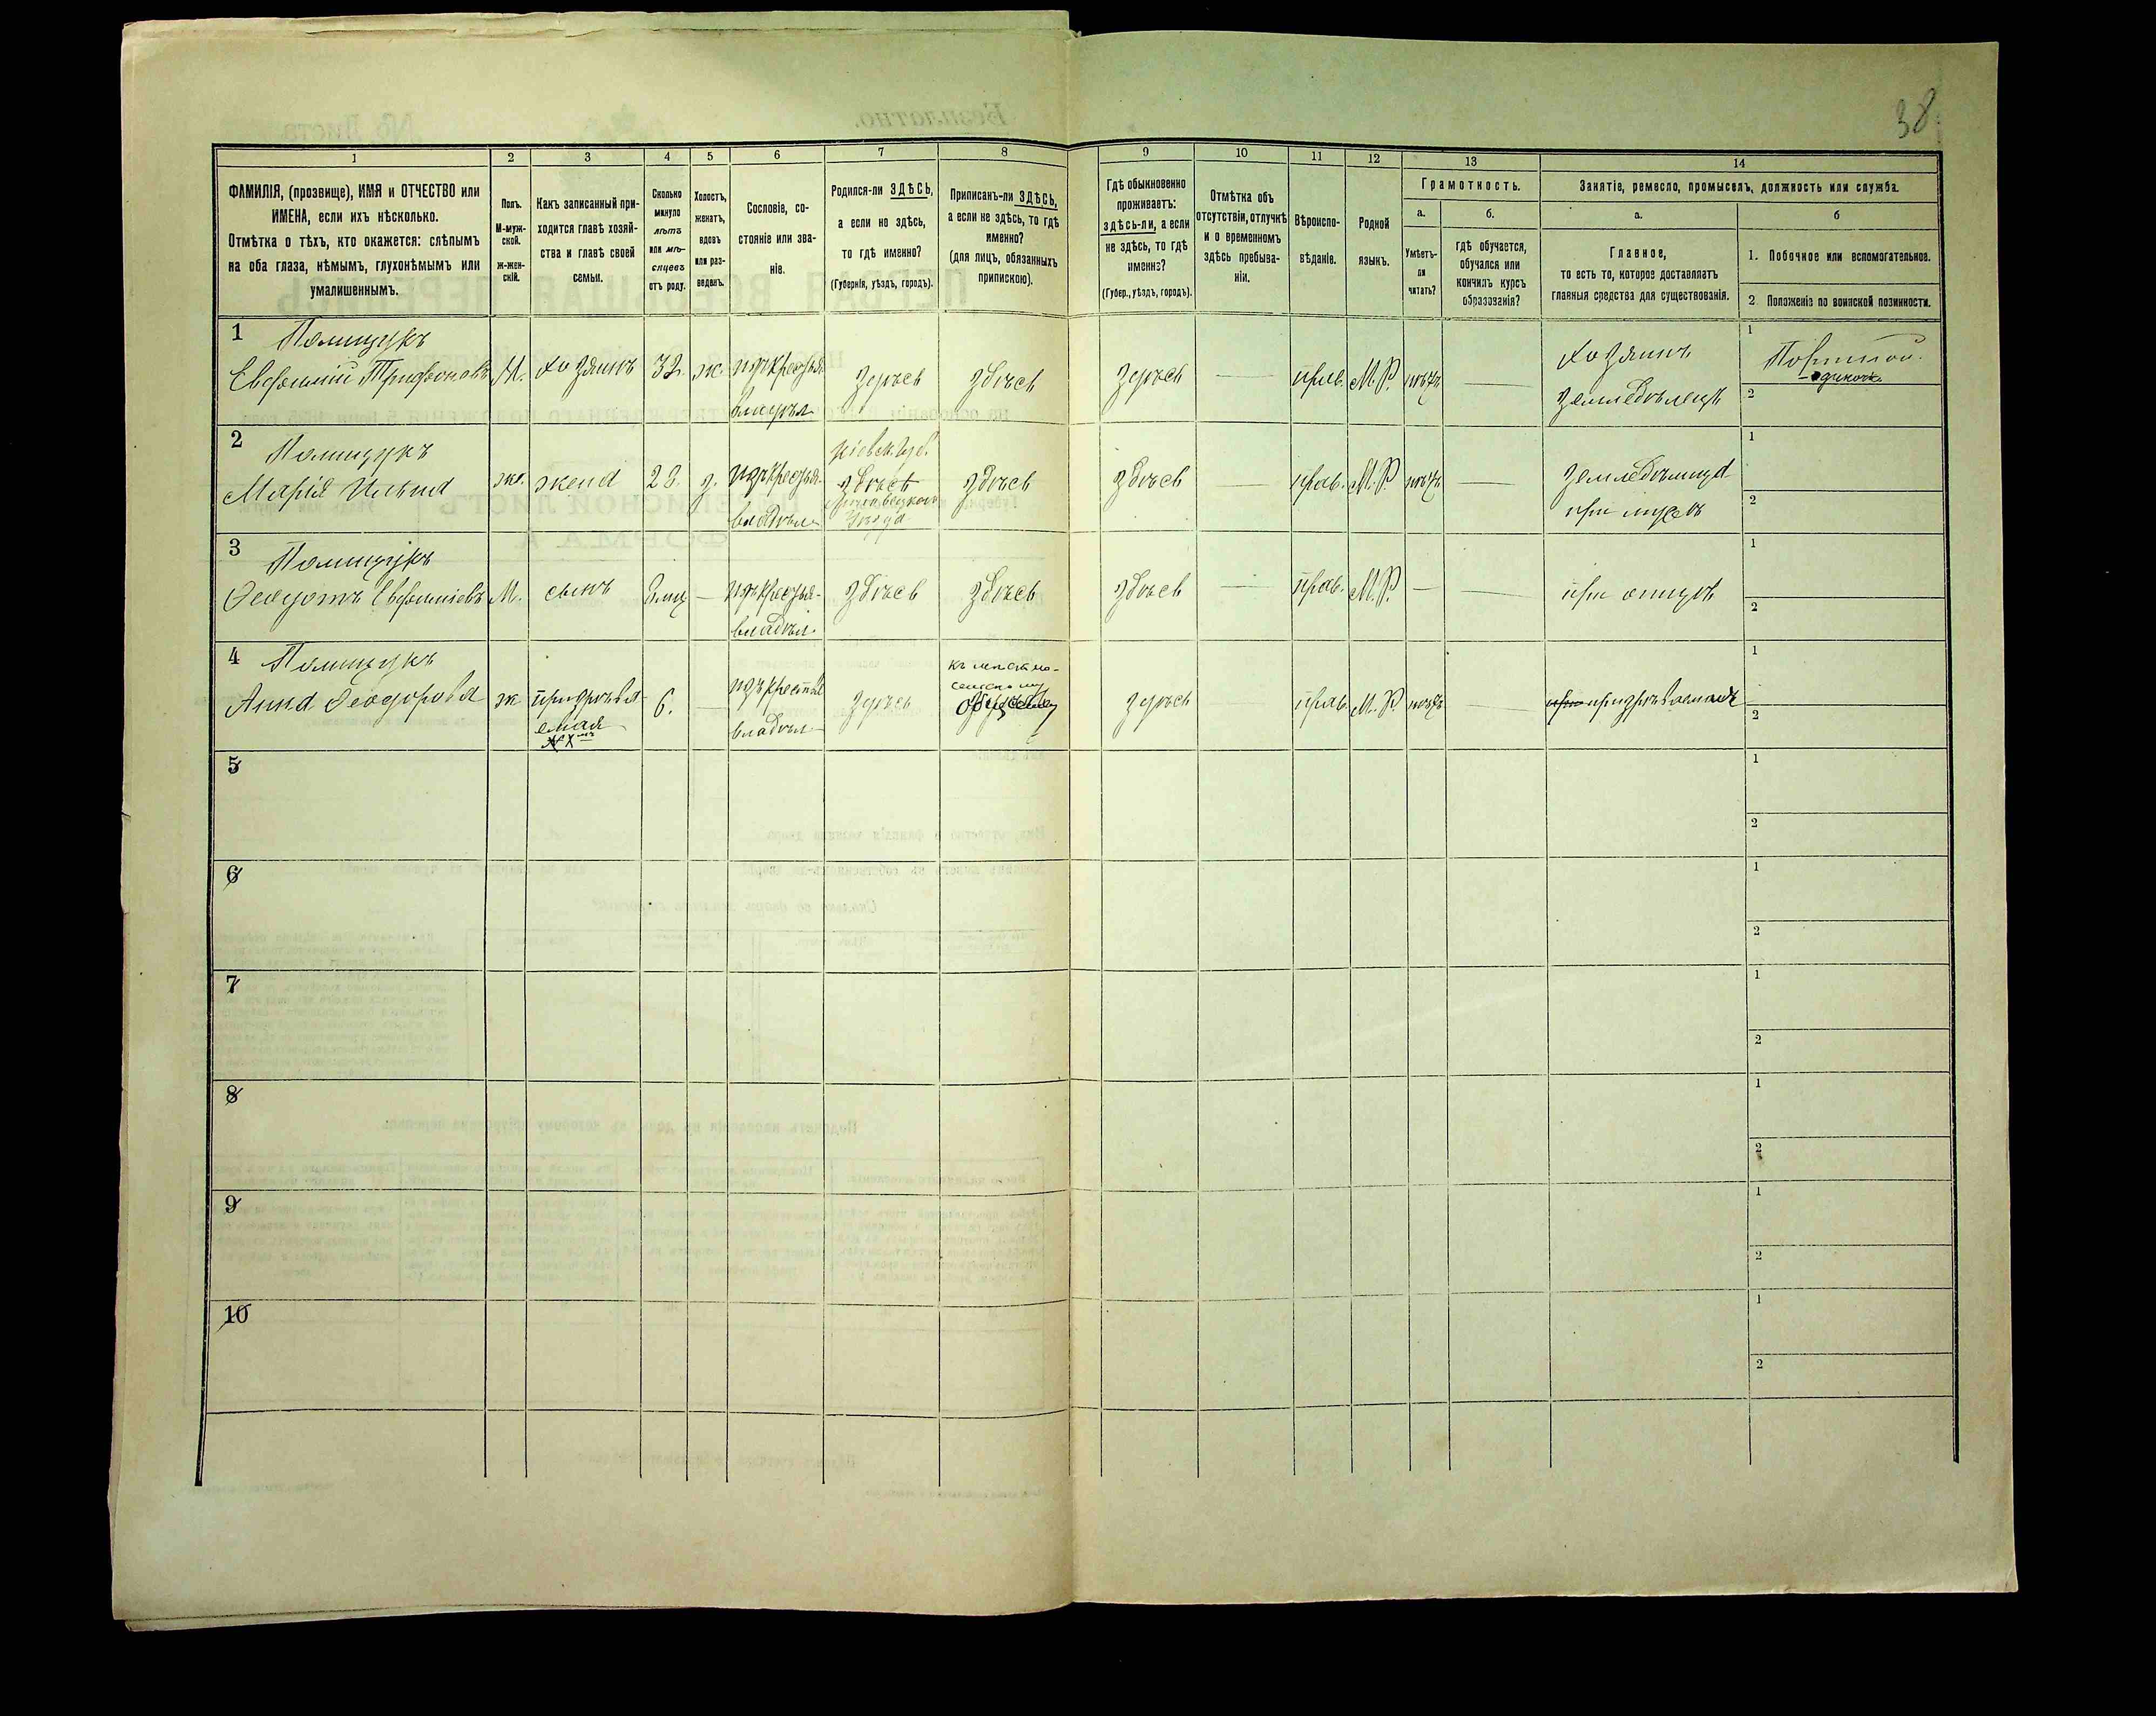 38
1 2 3 4 5 6 7 8 9 10 11 12 13 14
ФАМИЛІЯ, (прозвище), ИМЯ и ОТЧЕСТВО или
ИМЕНА, если ихъ нѣсколько.
Отмѣтка о тѣхъ, кто окажется: слѣпымъ
на оба глаза, нѣмымъ, глухонѣмымъ или
умалишеннымъ.
Полъ.
М-муж-
ской.
ж-жен-
скій.
Какъ записанный при-
ходится главѣ хозяй-
ства и главѣ своей
семьи.
Сколько
минуло
лѣтъ
или мѣ-
сяцевъ
отъ роду.
Холостъ,
женатъ,
вдовъ
или раз-
веденъ.
Сословіе, со-
стояніе или зва-
ніе.
Родился-ли ЗДѢСЬ,
а если не здѣсь,
то гдѣ именно?
(Губернія, уѣздъ, городъ).
Приписанъ-ли ЗДѢСЬ,
а если не здѣсь, то гдѣ
именно?
(для лицъ, обязанныхъ
припискою).
Гдѣ обыкновенно
проживаетъ:
здѣсь-ли, а если
не здѣсь, то гдѣ
именно?
(Губер., уѣздъ, городъ).
Отмѣтка объ
отсутствіи, отлучкѣ
и о временномъ
здѣсь пребыва-
ніи.
Вѣроиспо-
вѣданіе.
Родной
языкъ.
Грамотность.
а.
Умѣетъ-
ли
читать?
б.
гдѣ обучается,
обучался или
кончилъ курсъ
образованія?
Занятіе, ремесло, промыселъ, должность или служба.
а.
Главное,
то есть то, которое доставляетъ
главныя средства для существованія.
б
1. Побочное или вспомогательное.
2. Положеніе по воинской повинности.
1 Полищукъ
Евфимій Трифоновъ М. хозяинъ 32. ж. изъ крестья
владѣл здѣсь здѣсь здѣсь — прав. М.Р. нѣтъ —
хозяинъ
земледѣлецъ
1 Портной
-одиночка
2
2 Полищукъ
Марія Ильина жен. жена 28. з. изъ крестья-
владѣл.
Кіевск. губ.
здѣсь
уѣзда
здѣсь здѣсь — прав. М.Р. нѣтъ —
земледѣлица
при мужѣ
1
2
3 Полищукъ
Феодотъ Евфиміевъ М. сынъ — изъ крестья-
владѣл. здѣсь здѣсь здѣсь — прав. М.Р. — — при отцѣ
1
2
4 Полищукъ
Анна Феодорова ж призрѣва-
емая
6. — изъ крестья
владѣл. здѣсь
обществу
здѣсь — прав. М.Р. нѣтъ — при призрѣваемая
1
2
5
1
2
6
1
2
7
1
2
8
1
2
9
1
2
10
1
2